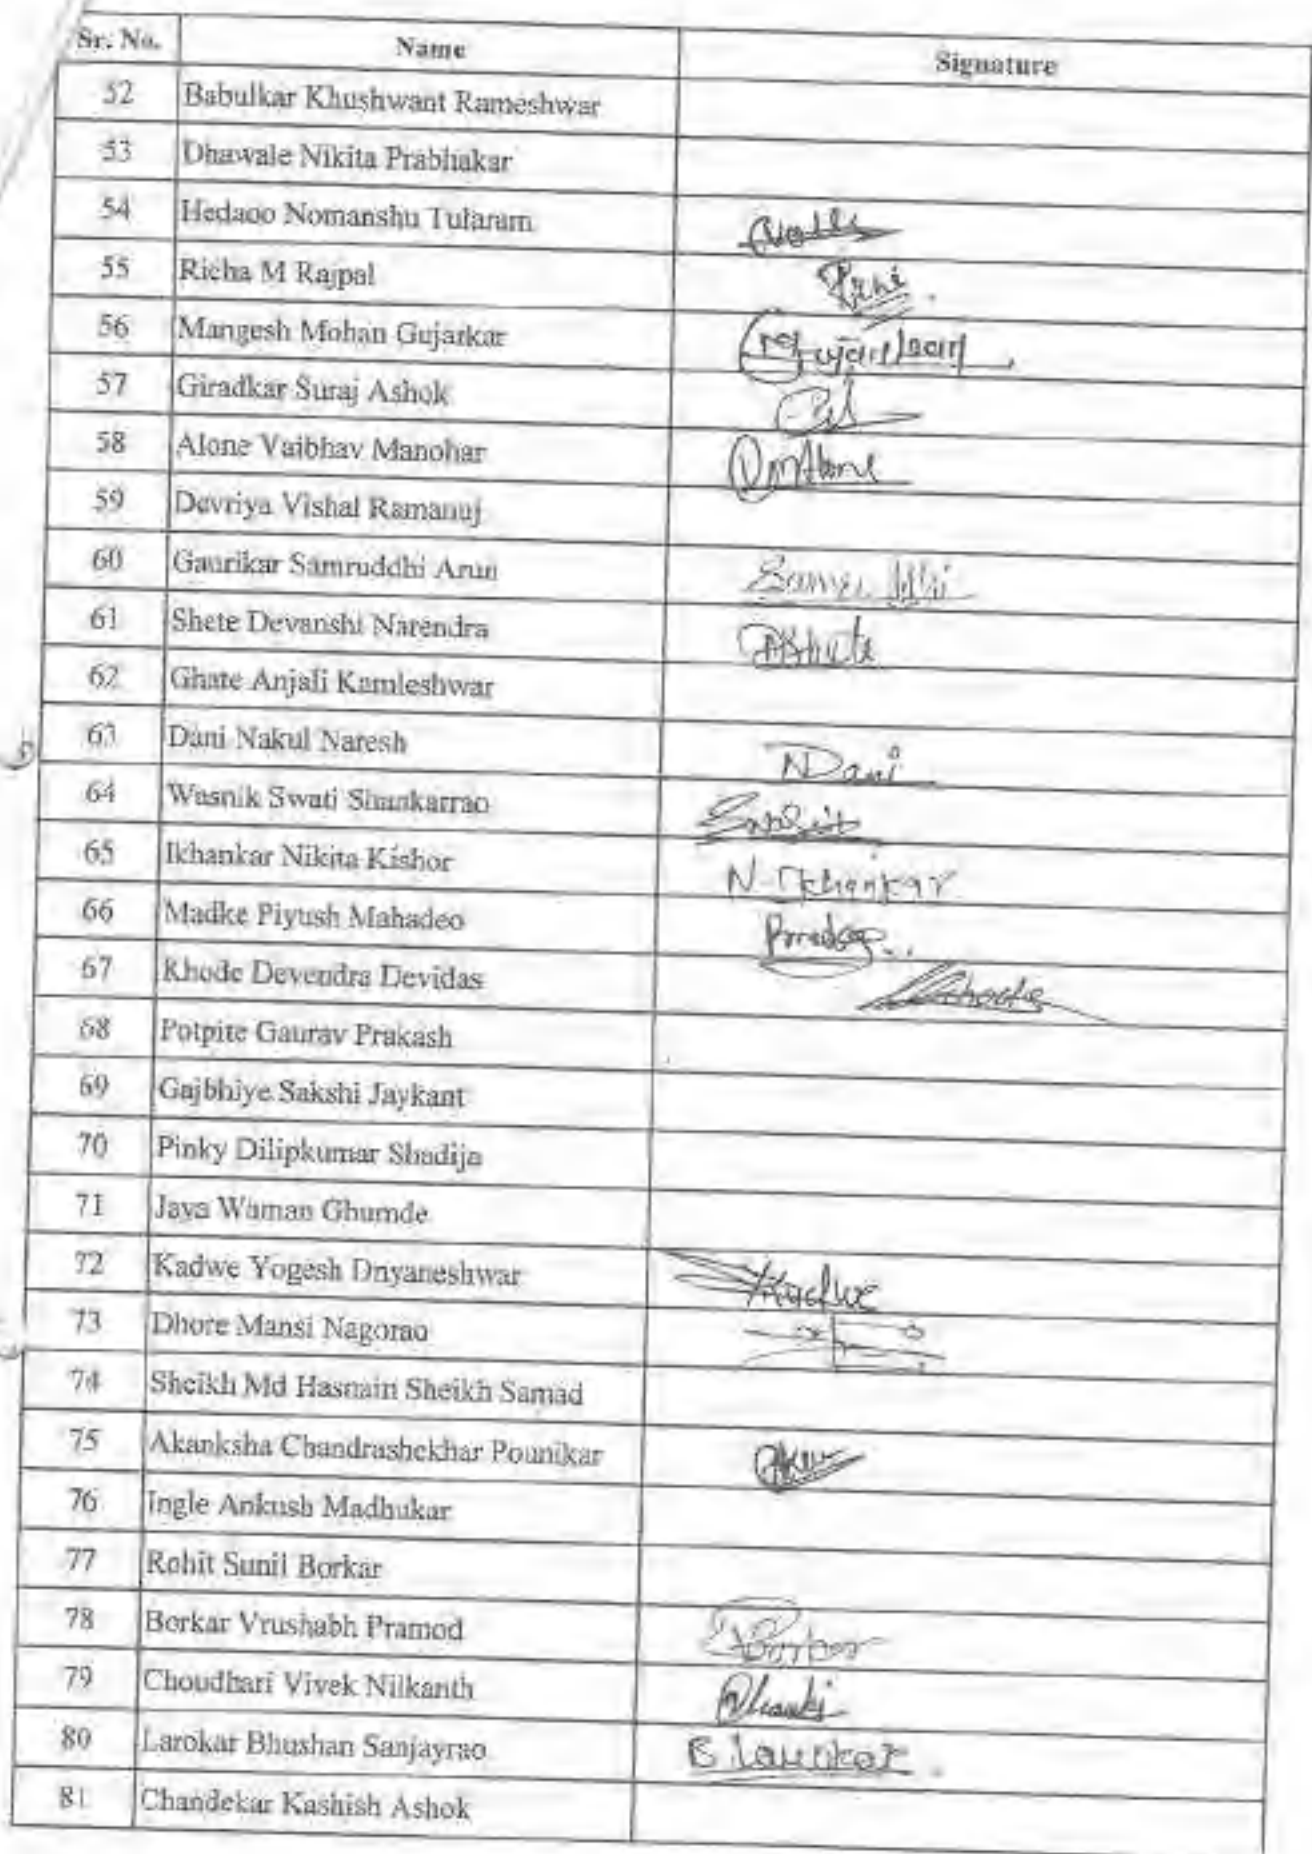 Sr. No. Name Signature
52 Babulkar Khushwant Rameshwar
53 Dhawale Nikita Prabhakar
54 Hedaoo Nomanshu Tularam
55 Richa M Rajpal
56 Mangesh Mohan Gujarkar
57 Giradkar Suraj Ashok
58 Alone Vaibhav Manohar
59 Devriya Vishal Ramanuj
60 Gaurikar Samruddhi Arun
61 Shete Devanshi Narendra
62 Ghate Anjali Kamleshwar
63 Dani Nakul Naresh NDani
64 Wasnik Swati Shankarrao
65 Ikhankar Nikita Kishor N. Ikhankar
66 Madke Piyush Mahadeo
67 Khode Devendra Devidas
68 Potpite Gaurav Prakash
69 Gajbhiye Sakshi Jaykant
70 Pinky Dilipkumar Shadija
71 Jaya Waman Ghumde
72 Kadwe Yogesh Dnyaneshwar YKadwe
73 Dhore Mansi Nagorao
74 Sheikh Md Hasnain Sheikh Samad
75 Akanksha Chandrashekhar Pounikar
76 Ingle Ankush Madhukar
77 Rohit Sunil Borkar
78 Borkar Vrushabh Pramod
79 Choudhari Vivek Nilkanth
80 Larokar Bhushan Sanjayrao
81 Chandekar Kashish Ashok